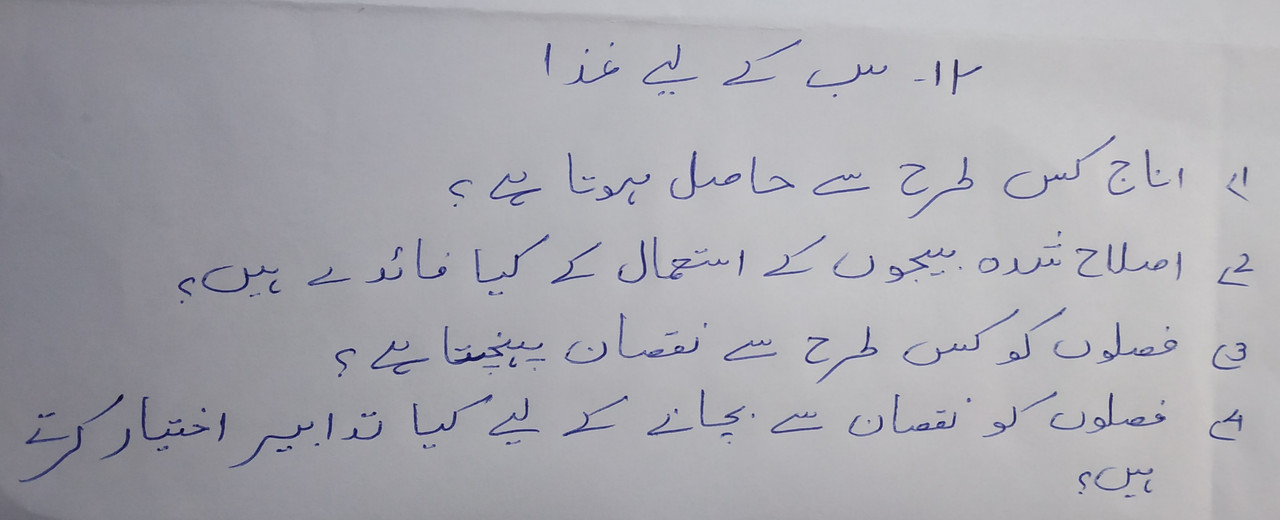 ۱۲- سب کے لیے غذا
1) اناج کس طرح سے حاصل ہوتا ہے؟
2) اصلاح شدہ بیجوں کے استعمال کے کیا فائدے ہیں؟
3) فصلوں کو کس طرح سے نقصان پہنچتا ہے؟
4) فصلوں کو نقصان سے بچانے کے لیے کیا تدابیر اختیار کرتے
ہیں؟